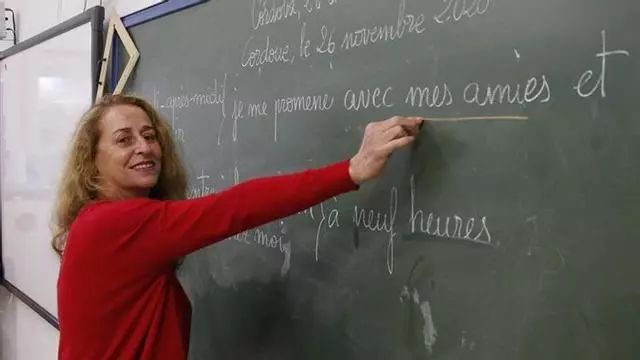 Cordoue,
Cordoue, le 26 novembre 2020
après-midi je me promène avec mes amies et
à neuf heures
moi,